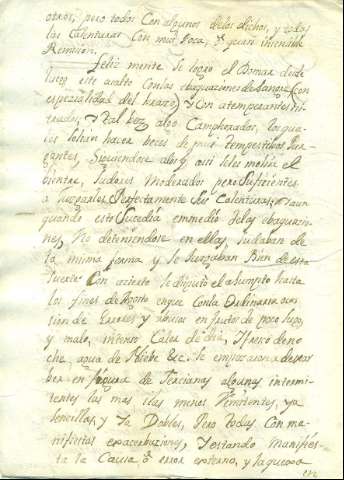 otros, pero todos Con algunos de los dichos, y todas
las Calenturas Con muy poca, o quasi insensible
Remision.
Feliz mente Se logró el Domar desde
luego este asalto Con las ebaquaciones de Sangre (con
espezialidad del brazo) y Con atemperantes ni-
trados, y tal bez algo Campherados, los qua-
les Solian hacer beces de muy tempestivos Pur-
gantes, Siguiendose a los y assi les molia el
bientre, Sudores Moderados pero Sufizientes
a Juzgarles Perfectamente Sus Calenturas; Y aun
quando esto Sucedia en medio de las ebaquazio-
nes, No deteniendose en ellas, Sudaban de
la misma forma y Se Juzgaban Bien de esta
Suerte. Con acierto Se disputó el asumpto hasta
los fines de Agosto en que Con la Ordinaria oca-
sion de Excesos y abusos en frutos de poco Jugo,
y malo, intenso Calor de dia, y fresco de no
che, agua de Niebe &c. Se empezaron a descu-
brir en figura de Terzianas algunas intermi-
tentes las mas de las menos Remitentes, ya
sencillas, y Ya Dobles, Pero todas Con ma-
nifiestas exacerbaziones, Y estando Manifies-
ta la Causa o error externo, y la quexa
en